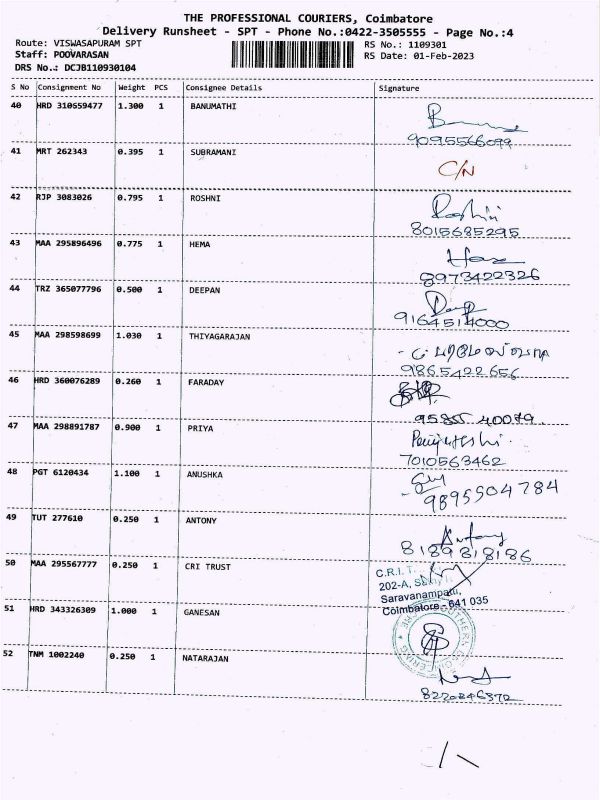 THE PROFESSIONAL COURIERS, Coimbatore
Delivery Runsheet - SPT - Phone No.:0422-3505555 - Page No.:4
Route: VISWASAPURAM SPT
Staff: POOVARASAN
DRS No.: DCJB110930104
RS No.: 1109301
RS Date: 01-Feb-2023
S No Consignment No Weight PCS Consignee Details Signature
40 HRD 310659477 1.300 1 BANUMATHI
9095566099
41 MRT 262343 0.395 1 SUBRAMANI C/N
42 RJP 3083026 0.795 1 ROSHNI Roshni
8015685295
43 MAA 295896496 0.775 1 HEMA
8973422326
44 TRZ 365077796 0.500 1 DEEPAN
9164514000
45 MAA 298598699 1.030 1 THIYAGARAJAN
9865422656
46 HRD 360076289 0.260 1 FARADAY
95855 40079
47 MAA 298891787 0.900 1 PRIYA
7010563462
48 PGT 6120434 1.100 1 ANUSHKA
9895504784
49 TUT 277610 0.250 1 ANTONY Antony
8189818186
50 MAA 295567777 0.250 1 CRI TRUST
C.R.I.
202-A,
Saravanampatti,
Coimbatore - 641 035
51 HRD 343326309 1.000 1 GANESAN
52 TNM 1002240 0.250 1 NATARAJAN
8220846372